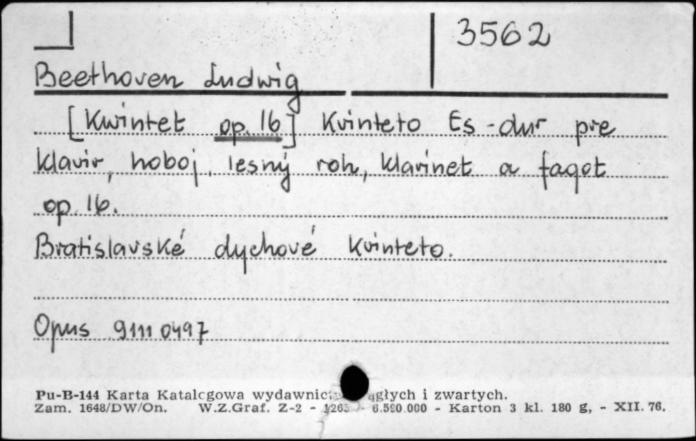 3562
Beethoven Ludwig
[Kwintet op. 16] Kvinteto Es-dur pre
klavir, hoboj, lesný roh, klarinet a fagot
op. 16.
Bratislavské dychové kvinteto.
Opus 9111 0497
Pu-B-144 Karta Katalcgowa wydawnic ągłych i zwartych.
Zam. 1648/DW/On. W.Z.Graf. Z-2 - 6.500.000 - Karton 3 kl. 180 g, - XII. 76.